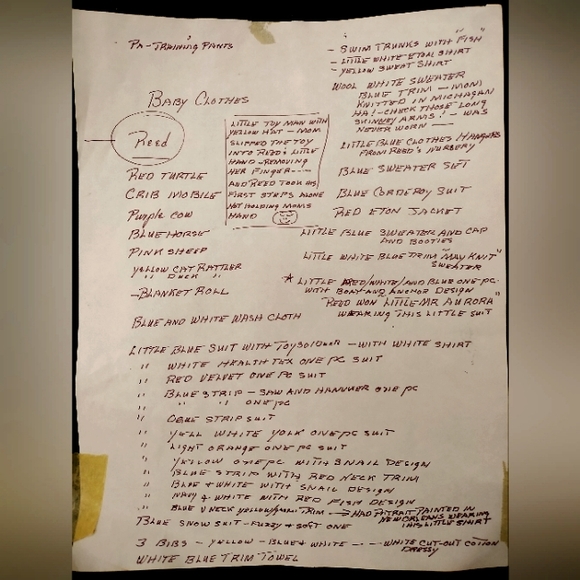 PA-TRAINING PANTS
BABY CLOTHES
Reed
RED TURTLE
CRIB MOBILE
Purple COW
BLUE HORSE
PINK SHEEP
YELLOW CAT RATTLER
" DUCK "
-BLANKET ROLL
BLUE AND WHITE WASH CLOTH
LITTLE TOY MAN WITH
YELLOW HAT - MOM
SLIPPED THE TOY
INTO REED'S LITTLE
HAND - REMOVING
HER FINGER----
AND REED TOOK HIS
FIRST STEPS ALONE
NOT HOLDING MOMS
HAND
- SWIM TRUNKS WITH "FISH"
- LITTLE WHITE ETON SHIRT
- YELLOW SWEAT SHIRT
WOOL WHITE SWEATER
BLUE TRIM - MOM
KNITTED IN MICHAGAN
HA! - CHECK THOSE LONG
SKINNEY ARMS! - WAS
NEVER WORN ——
LITTLE BLUE CLOTHES HANGERS
FROM REED'S NURSERY
BLUE SWEATER SET
BLUE CORDEROY SUIT
RED ETON JACKET
LITTLE BLUE SWEATER AND CAP
AND BOOTIES
LITTLE WHITE BLUE TRIM "MAY KNIT"
SWEATER
* LITTLE RED/WHITE/AND BLUE ONE PC.
WITH BOAT AND ANCHOR DESIGN
REED WON "LITTLE MR AURORA"
WEARING THIS LITTLE SUIT
LITTLE BLUE SUIT WITH TOY SOLDIER - WITH WHITE SHIRT
" WHITE HEALTH TEX ONE PC SUIT
" RED VELVET ONE PC SUIT
" BLUE STRIP - SAW AND HAMMER ONE PC
" " " ONE PC
" STRIP SUIT
" WHITE YOLK ONE PC SUIT
" LIGHT ORANGE ONE PC SUIT
" YELLOW ONE PC WITH SNAIL DESIGN
" BLUE STRIP WITH RED NECK TRIM
" BLUE & WHITE WITH SNAIL DESIGN
" NAVY & WHITE WITH RED FISH DESIGN
" BLUE V NECK YELLOW/ TRIM → HAD PATRAIT PAINTED IN
NEW ORLEANS WEARING
THIS LITTLE SHIRT
BLUE SNOW SUIT - FUZZY & SOFT ONE
3 BIBS - YELLOW - BLUE & WHITE - - - WHITE CUT-OUT COTTON
DRESSY
WHITE BLUE TRIM TOWEL